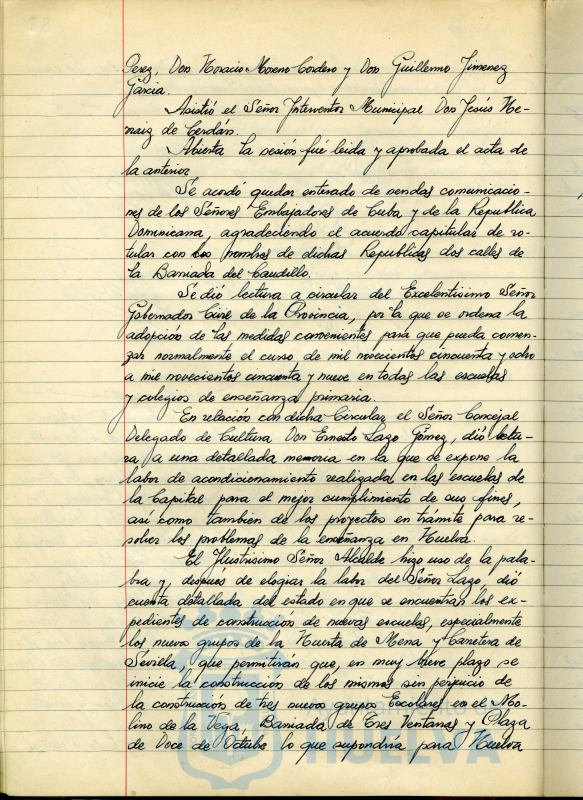 Perez, Don Horacio Moreno Cordero y Don Guillermo Jimenez
Garcia.
Asistió el Señor Interventor Municipal Don Jesús He-
raiz de Cerdán.
Abierta la sesión fué leida y aprobada el acta de
la anterior
Se acordó quedar enterado de sendas comunicacio-
nes de los Señores Embajadores de Cuba y de la Republica
Dominicana, agradeciendo el acuerdo capitular de ro-
tular con los nombres de dichas Republicas dos calles de
la Barriada del Caudillo.
Se dió lectura a circular del Excelentisimo Señor
Gobernador Civil de la Provincia, por la que se ordena la
adopción de las medidas convenientes para que pueda comen-
zar normalmente el curso de mil novecientos cincuenta y ocho
a mil novecientos cincuenta y nueve en todas las escuelas
y colegios de enseñanza primaria.
En relación con dicha Circular el Señor Concejal
Delegado de Cultura Don Ernesto Lazo Gómez, dió lectu-
ra a una detallada memoria en la que se expone la
labor de acondicionamiento realizada en las escuelas de
la Capital para el mejor cumplimiento de sus fines,
así como tambien de los proyectos en trámite para re-
solver los problemas de la enseñanza en Huelva.
El Ilustrisimo Señor Alcalde hizo uso de la pala-
bra y, despues de elogiar la labor del Señor Lazo, dió
cuenta detallada del estado en que se encuentran los ex-
pedientes de construcción de nuevas escuelas, especialmente
los nuevos grupos de la Huerta de Mena y Carretera de
Sevilla, que permitirán que, en muy breve plazo se
inicie la construcción de los mismos sin perjuicio de
la construcción de tres nuevos grupos Escolares en el Mo-
lino de la Vega, Barriada de Tres Ventanas y Plaza
de Doce de Octubre lo que supondría para Huelva
HUELVA